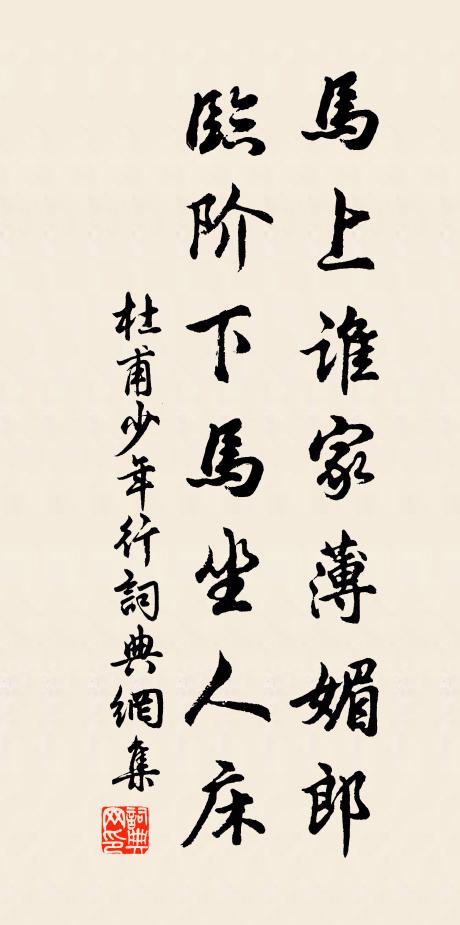 馬上誰家薄媚郎
臨阶下馬坐人床
杜甫少年行詞典網集
詞典網印